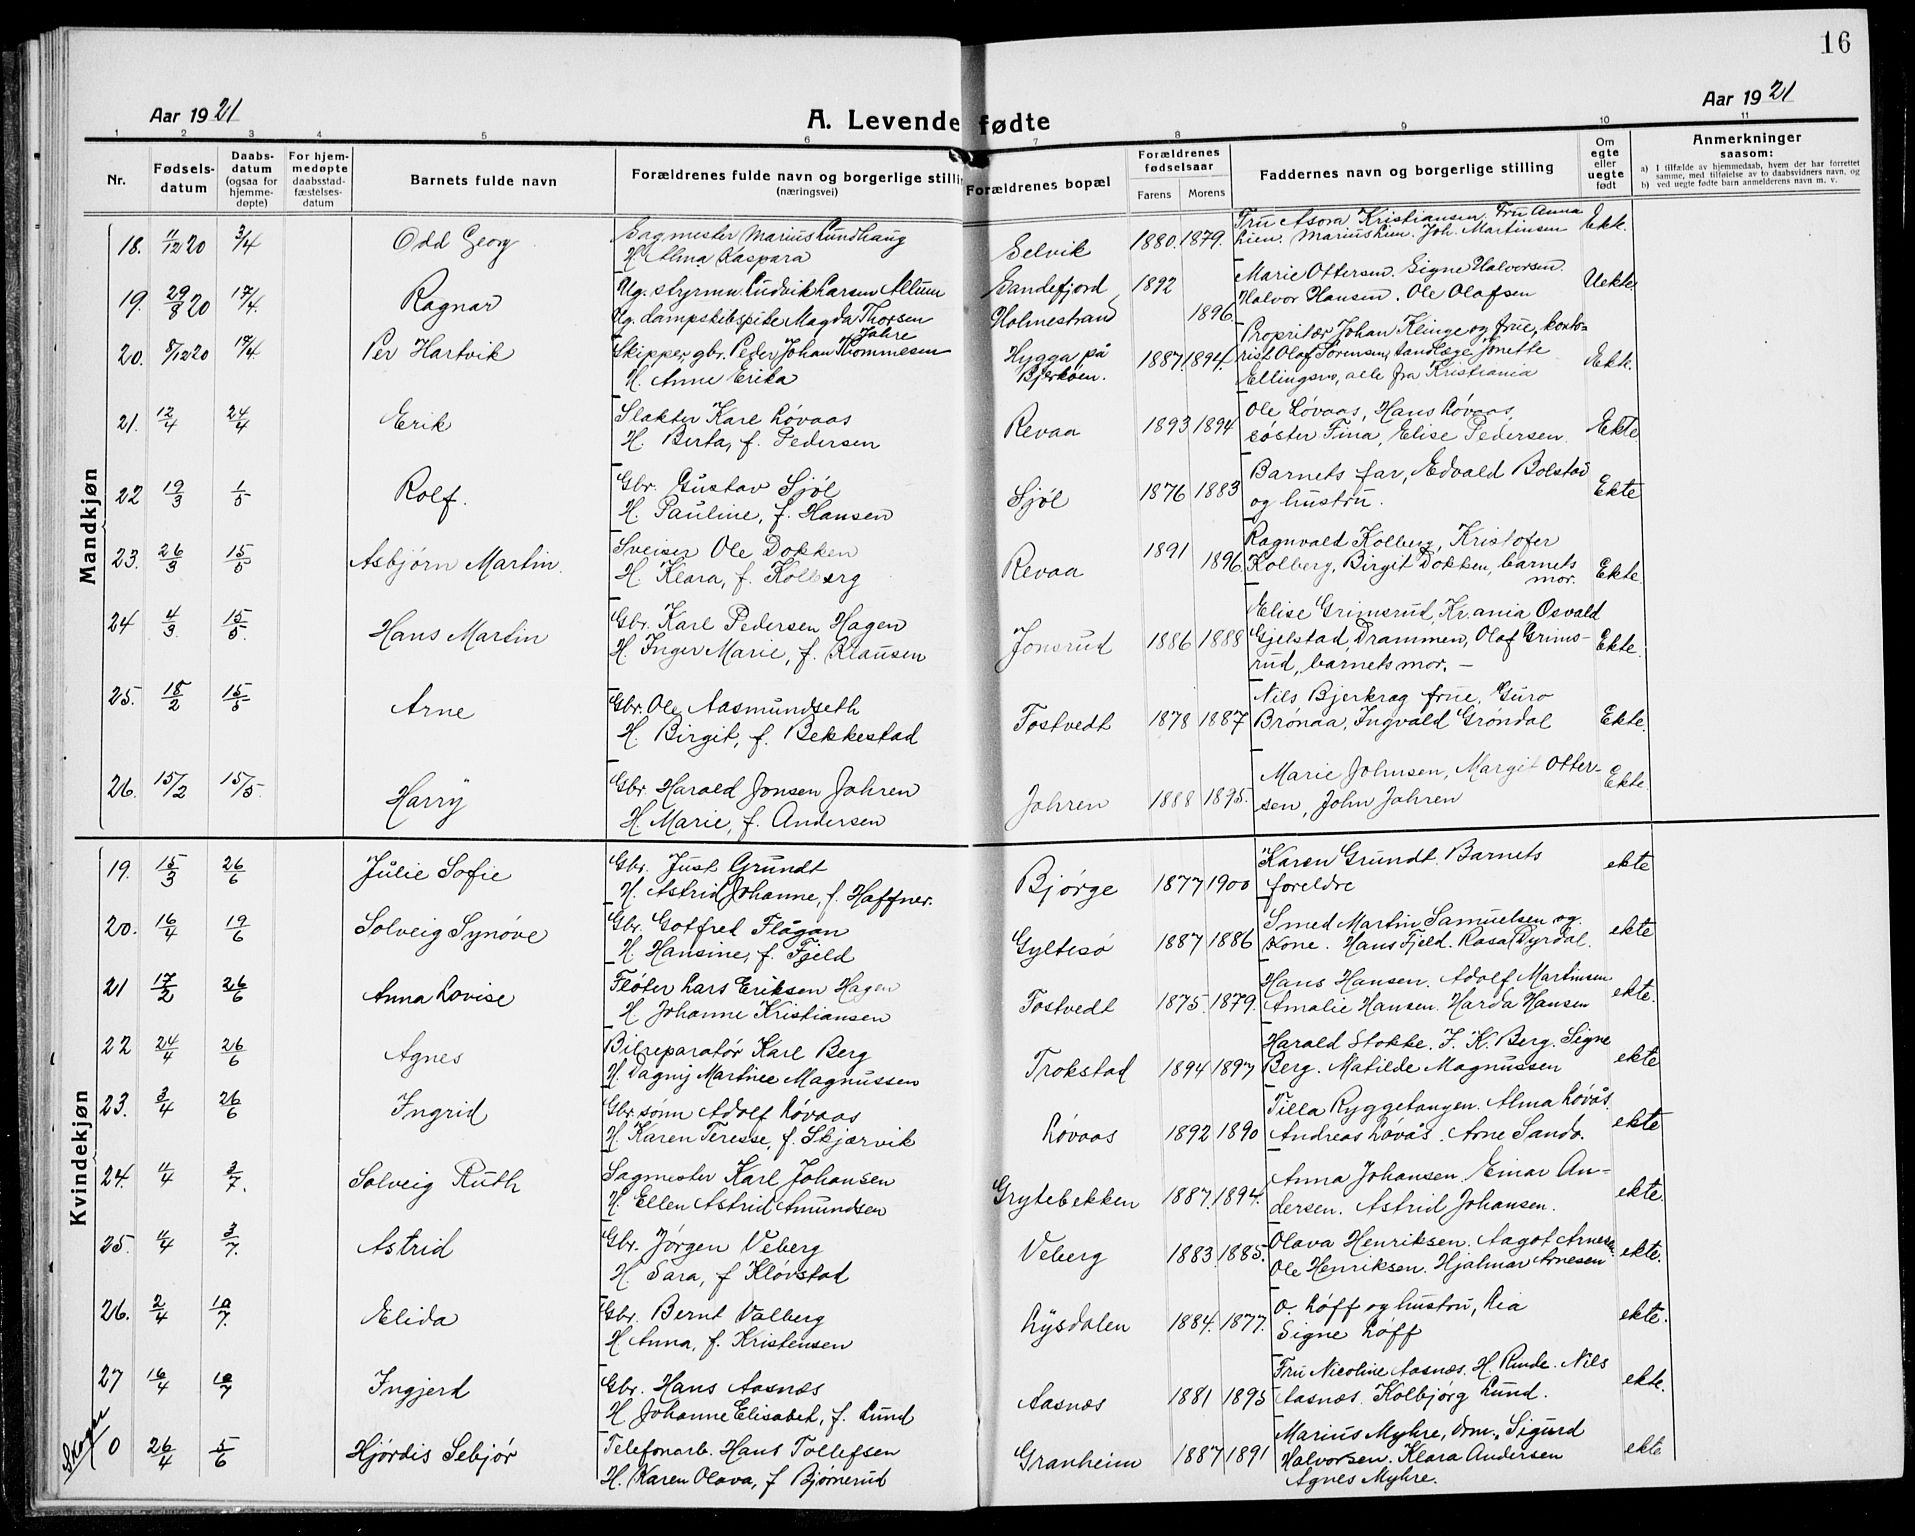 16
Aar 1921
A. Levende fødte
Aar 1921
1 2 3 4 5 6 7 8 9 10 11
Nr.
Fødsels-
datum
Daabs-
datum
(ogsaa for
hjemme-
døpte)
For hjem-
medøpte
daabsstad-
fæstelses-
datum
Barnets fulde navn
Forældrenes fulde navn og borgerlige stillin
(næringsvei)
Forældrenes bopæl
Forældrenes
fødselsaar
Farens Morens
Faddernes navn og borgerlige stilling
Om
egte
eller
uegte
født
Anmerkninger
saasom:
a) I tilfælde av hjemmedaab, hvem der har forrettet
samme, med tilføielse av to daabsvidners navn, og
b) ved uegte fødte barn anmelderens navn m. v.
Mandkjøn
18. 11/12 20 3/4 Odd Georg
Sagmester Marius Lundhaug
H. Alma Kaspara
Selvik 1880. 1879.
Fru Asora Kristiansen, Fru Anna
Lien. Marius Lien. Joh. Martinsen
Ekte.
19. 29/8 20 17/4. Ragnar
Ug. styrm. Ludvik Larsen Allum
Ug. dampskibspike Magda Thorsen
Sandefjord 1892
Holmestrand 1896.
Marie Ottersen. Signe Halvorsen.
Halvor Hansen. Ole Olafsen
Uekte
20. 8/12 20 17/4 Per Hartvik
Jahre
Skipper, gbr. Peder Johan Thommesen
H. Anne Erika
Hygga på
Bjerkøen.
1887 1894.
Propritær Johan Klinge og frue, konto-
rist Olaf Sørensen, tandlæge Jonette
Ellingsen, alle fra Kristiania
Ekte.
21. 12/4 24/4 Erik
Slakter Karl Løvaas
H. Berta, f. Pedersen
Revaa 1893 1894
Ole Løvaas, Hans Løvaas,
søster Fina, Elise Pedersen.
Ekte
22 19/3 1/5 Rolf.
Gbr. Gustav Sjøl
H. Pauline, f. Hansen
Sjøl 1876 1883
Barnets far, Edvald Bolstad
og hustru.
Ekte
23. 26/3 15/5 Asbjørn Martin.
Sveiser Ole Dokken
H. Klara, f. Kolberg
Revaa 1891 1896
Ragnvald Kolberg, Kristofer
Kolberg, Birgit Dokken, barnets
mor.
Ekte.
24 4/3 15/5. Hans Martin
Gbr. Karl Pedersen Hagen
H. Inger Marie, f. Klausen
Jonsrud 1886 1888
Elise Grimsrud, Kr.ania Osvald
Gjelstad, Drammen, Olaf Grims-
rud, barnets mor. –
Ekte.
25. 18/2 15/5 Arne
Gbr. Ole Aasmundseth
H. Birgit, f. Bekkestad
Tostvedt 1878 1887
Nils Bjerk og frue, Guro
Brønaa, Ingvald Grøndal
Ekte.
26. 15/2 15/5. Harry
Gbr. Harald Jonsen Jahren
H. Marie, f. Andersen
Jahren 1888 1895.
Marie Johnsen, Margit Otter-
sen, John Jahren
Ekte
Kvindekjøn
19. 15/3 26/6 Julie Sofie
Gbr. Just Grundt
H. Astrid Johanne, f. Haffner.
Bjørge 1877 1900
Karen Grundt. Barnets
foreldre
ekte
20. 16/4 19/6 Solveig Synøve
Gbr. Gotfred Flågan
H. Hansine, f. Fjeld
Gyltesø 1887 1886
Smed Martin Samuelsen og
kone. Hans Fjeld. Rosa Dyrdal.
ekte
21 17/2 26/6 Anna Lovise
Fløter Lars Eriksen Hagen
H Johanne Kristiansen
Tostvedt 1875. 1879.
Hans Hansen. Adolf Martinsen
Amalie Hansen. Harda Hansen
ekte.
22 24/4 26/6 Agnes
Bilreparatør Karl Berg
H. Dagny Martine Magnussen
Trokstad 1894 1897
Harald Stokke. J. K. Berg. Signe
Berg. Matilde Magnussen
ekte
23. 3/4 26/6 Ingrid
Gbr.sønn Adolf Løvaas
H. Karen Teresse, f. Skjærvik
Løvaas 1892 1890
Tilla Ryggetangen. Alma Løvås.
Andreas Løvås. Arne Sando.
ekte
24. 11/4 3/7. Solveig Ruth
Sagmester Karl Johansen
H. Ellen Astrid Amundsen
Grytebekken 1887. 1894.
Anna Johansen. Einar An-
dersen. Astrid Johansen.
ekte.
25. 11/4 3/7. Astrid
Gbr. Jørgen Veberg
H. Sara, f Kløvstad
Veberg 1883. 1885.
Olava Henriksen. Aagot Arnesen.
Ole Henriksen. Hjalmar Arnesen
ekte.
26. 2/4 10/7. Elida
Gbr. Bernt Valberg
H Anna, f. Kristensen
Lysdalen 1884. 1877.
O. Løff og hustru, Lia
Signe Løff
ekte.
27 16/4 10/7 Ingjerd
Gbr. Hans Aasnæs
H Johanne Elisabet, f. Lund
Aasnæs 1881 1895
Fru Nicoline Aasnæs. H. Rinde. Nils
Aasnæs. Kolbjørg Lund.
ekte.
Skoger
0 26/4 5/6 Hjørdis Sebjør
Telefonarb. Hans Tollefsen
H. Karen Olava, f Bjørnerud
Granheim 1887 1891
Marius Myhre, Drm., Sigurd
Halvorsen. Klara Andersen
Agnes Myhre.
ekte